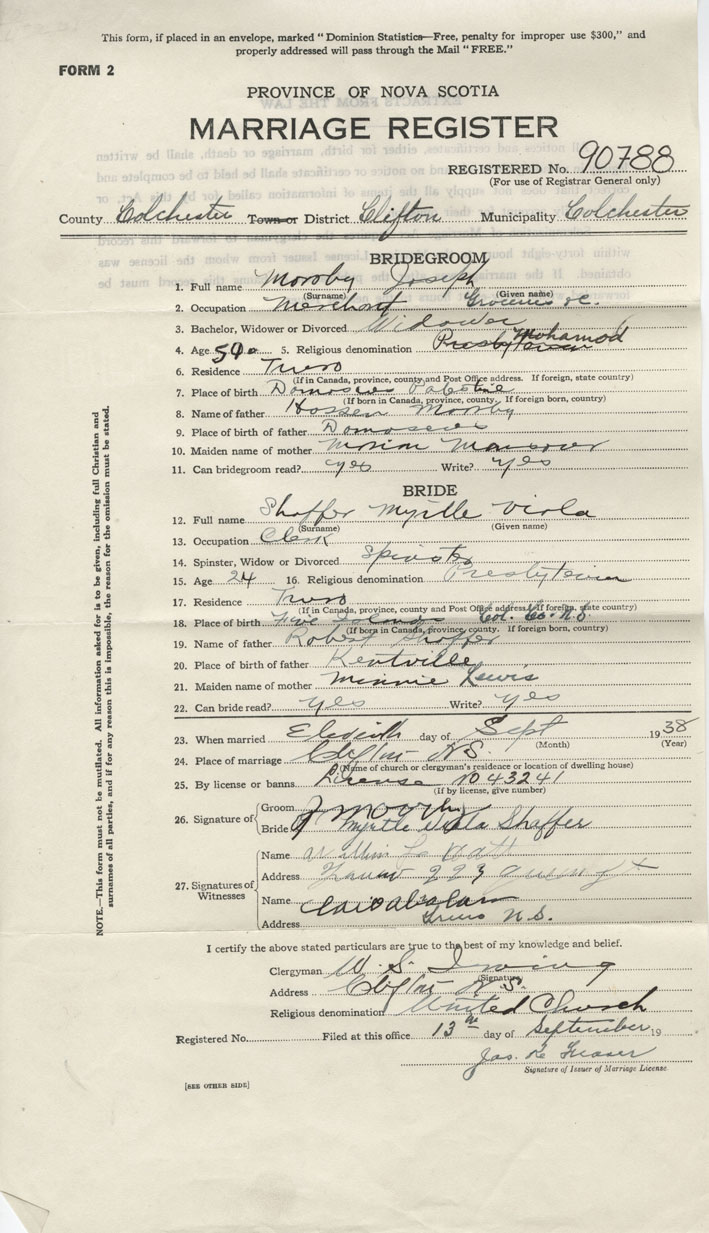 This form, if placed in an envelope, marked "Dominion Statistics—Free, penalty for improper use $300," and
properly addressed will pass through the Mail "FREE."
FORM 2
PROVINCE OF NOVA SCOTIA
MARRIAGE REGISTER
REGISTERED No. 90788
(For use of Registrar General only)
County Colchester Town or District Clifton Municipality Colchester
BRIDEGROOM
1. Full name Moroby Joseph
(Surname) (Given name)
2. Occupation Merchant Groceries &c.
3. Bachelor, Widower or Divorced Widower
4. Age 50 5. Religious denomination Presbyterian Mohamod
6. Residence Truro
(If in Canada, province, county and Post Office address. If foreign, state country)
7. Place of birth Domoscus Palestine
(If born in Canada, province, county. If foreign born, country)
8. Name of father Hossen Moroby
9. Place of birth of father Domoscus
10. Maiden name of mother
11. Can bridegroom read? yes Write? yes
BRIDE
12. Full name Shaffer Myrtle Viola
(Surname) (Given name)
13. Occupation Clerk
14. Spinster, Widow or Divorced Spinster
15. Age 24 16. Religious denomination Presbyterian
17. Residence Truro
(If in Canada, province, county and Post Office address. If foreign, state country)
18. Place of birth Five Islands Col. Co. N.S
(If born in Canada, province, county. If foreign born, country)
19. Name of father Robert Shaffer
20. Place of birth of father Kentville
21. Maiden name of mother Minnie Lewis
22. Can bride read? yes Write? yes
23. When married day of Sept 1938
(Month) (Year)
24. Place of marriage Clifton N.S.
(Name of church or clergyman's residence or location of dwelling house)
25. By license or banns License No 43241
(If by license, give number)
26. Signature of Groom J
Bride Myrtle Viola Shaffer
27. Signatures of Witnesses
Name
Address 223 Queen St
Name
Address Truro N.S.
I certify the above stated particulars are true to the best of my knowledge and belief.
Clergyman W. S. Irving
(Signature)
Address Clifton N.S.
Religious denomination United Church
Registered No. Filed at this office 13th day of September 19
Jas. Fraser
Signature of Issuer of Marriage License
[SEE OTHER SIDE]
NOTE.—This form must not be mutilated. All information asked for is to be given, including full Christian and
surnames of all parties, and if for any reason this is impossible, the reason for the omission must be stated.